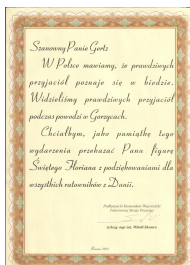 Szanowny Panie Gertz
W Polsce mawiamy, że prawdziwych
przyjaciół poznaje się w biedzie.
Widzieliśmy prawdziwych przyjaciół
podczas powodzi w Gorzycach.
Chciałbym, jako pamiątkę tego
wydarzenia przekazać Panu figurę
Świętego Floriana z podziękowaniami dla
wszystkich ratowników z Danii.
Podkarpacki Komendant Wojewódzki
Państwowej Straży Pożarnej